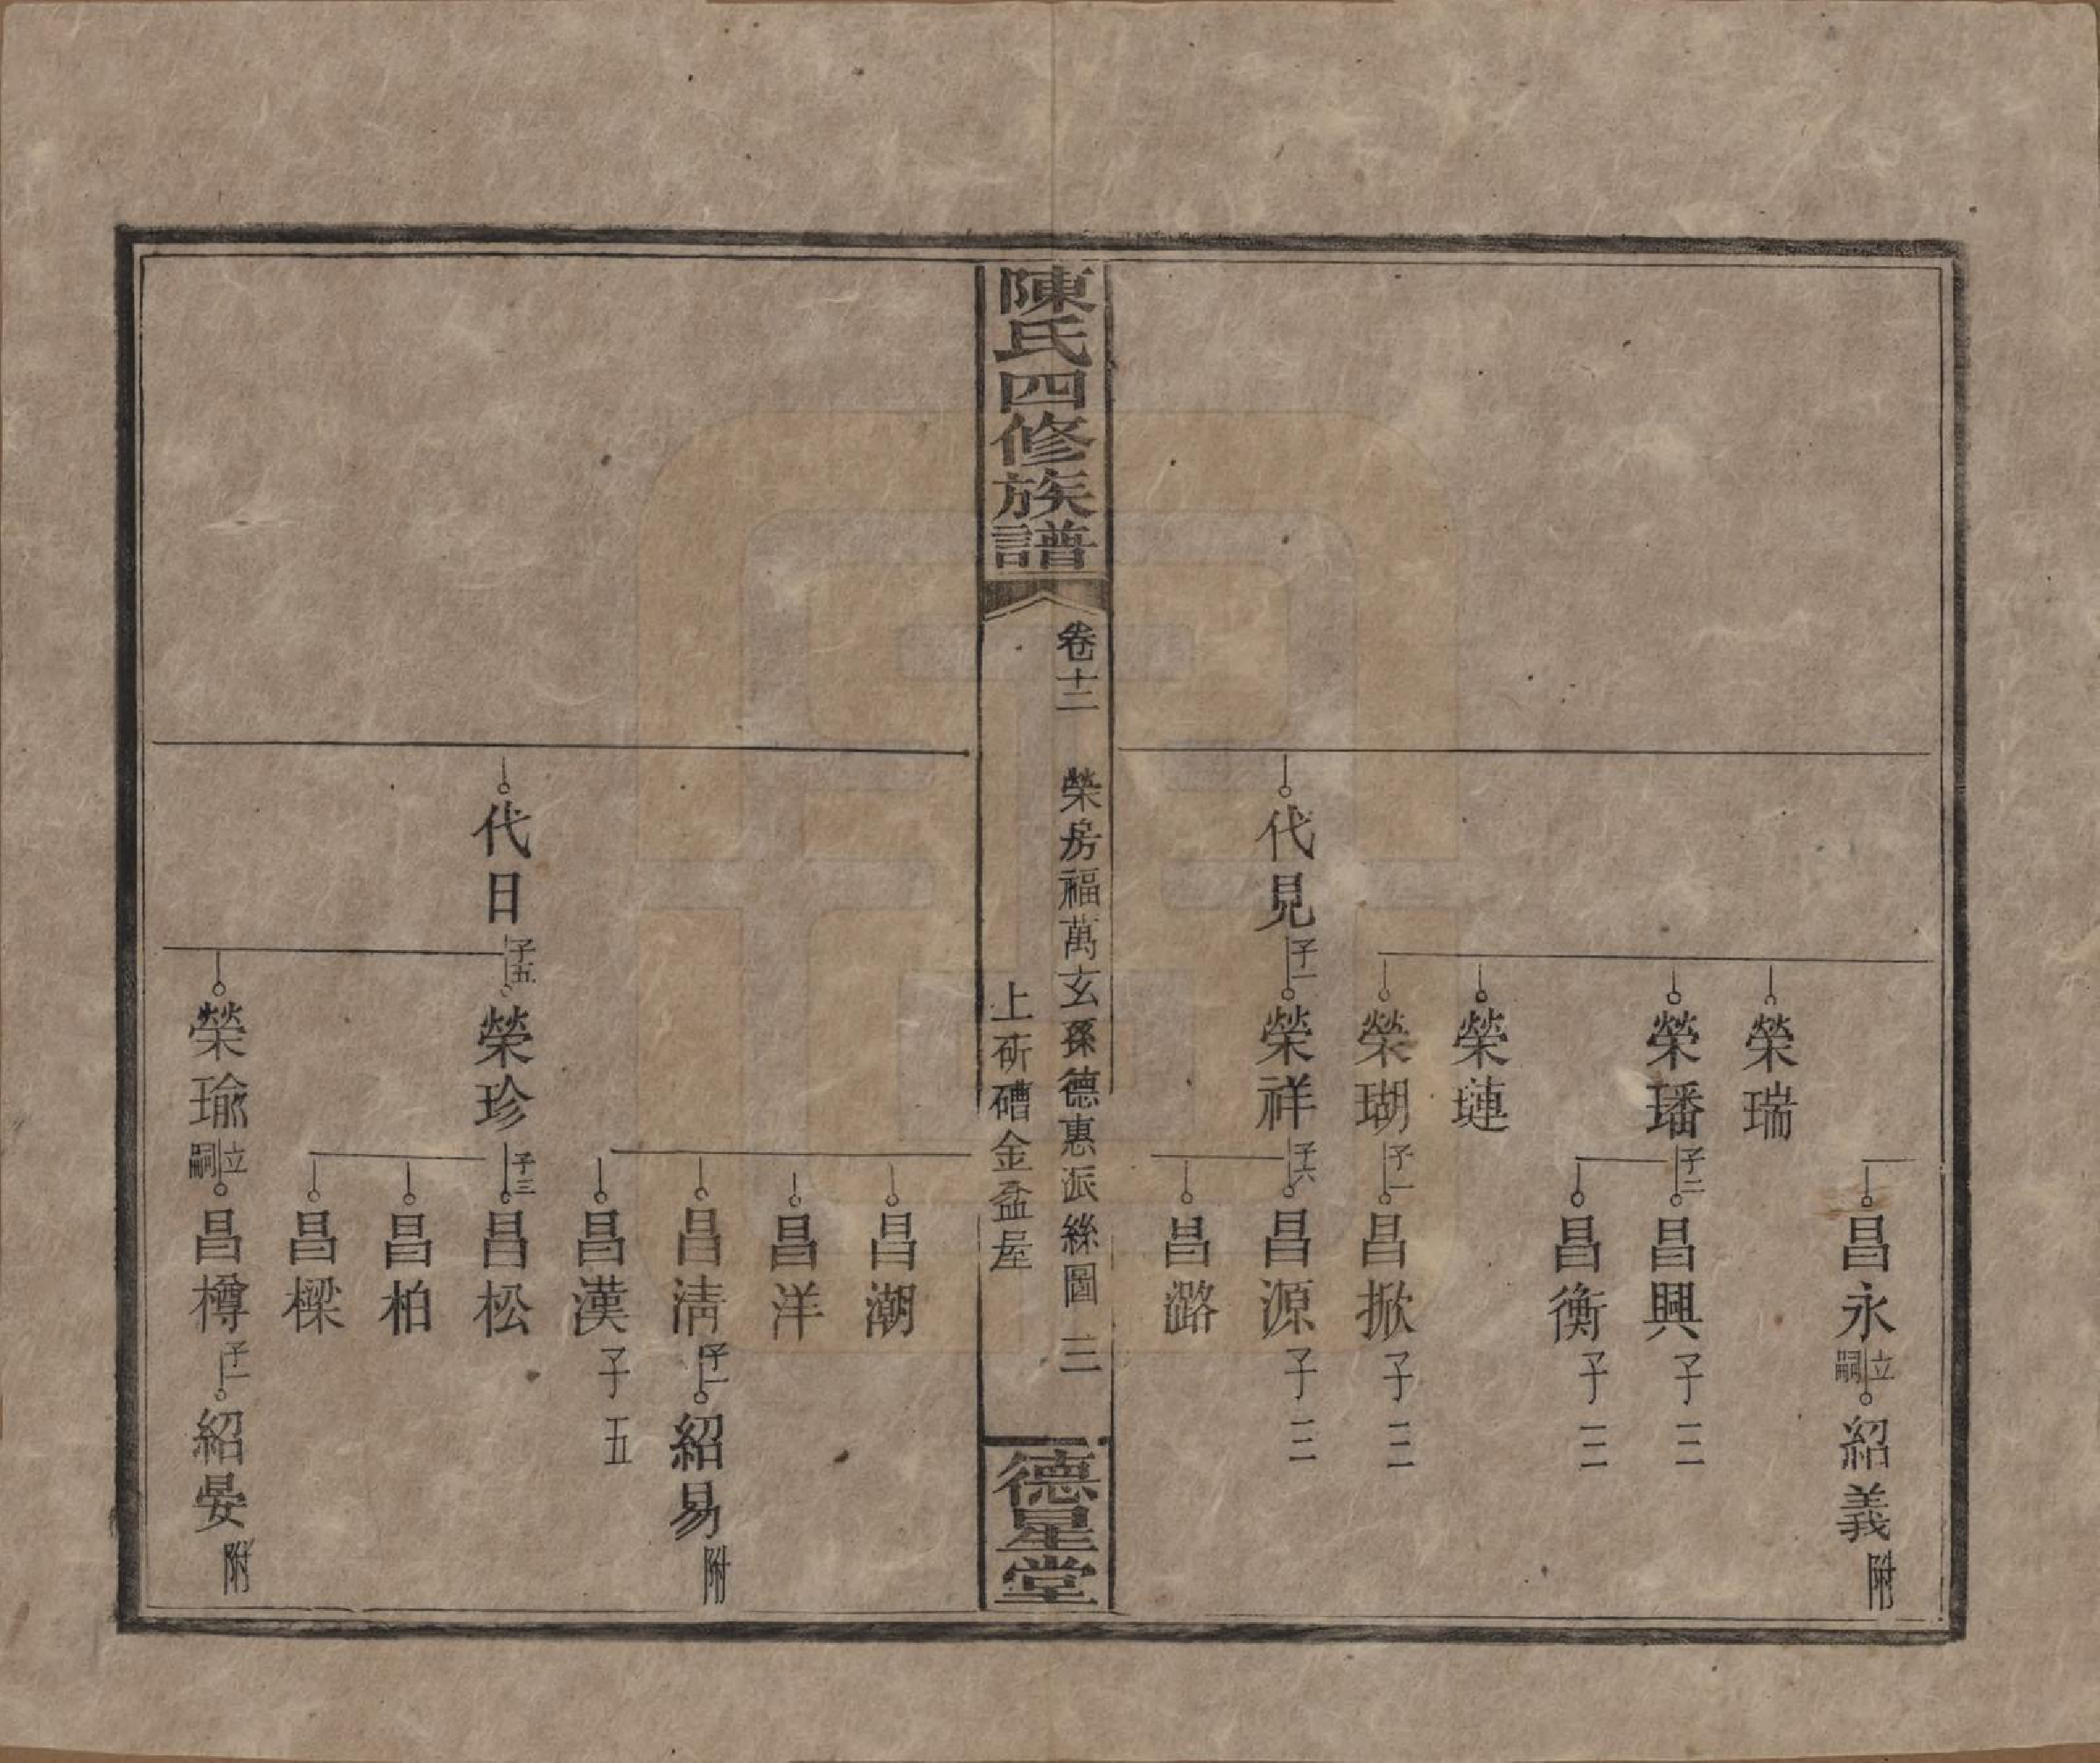 昌永立嗣紹義附
榮瑞
榮璠子二昌興子二
昌衡子二
榮璉
榮瑚子一昌掀子二
代見子一榮祥子六昌源子二
昌潞
陳氏四修族譜
卷十二 榮房福萬玄孫德惠派絲圖 三
上斫磄金盆屋
德星堂
昌潮
昌洋
昌淸子一紹易附
昌漢子五
代日子五榮珍子三昌松
昌柏
昌樑
榮瑜立嗣昌樽子一紹晏附